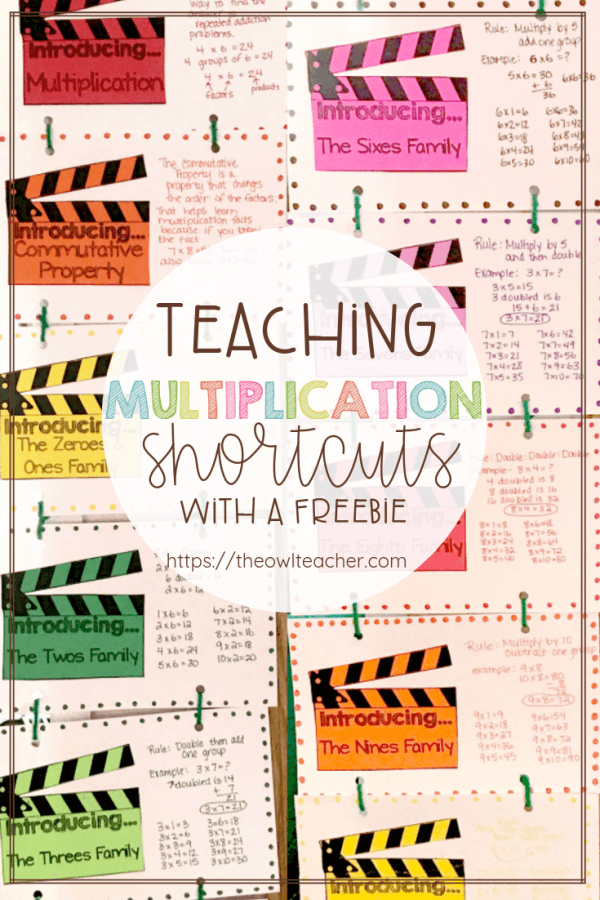 way to find the
repeated addition
problems.
4 x 6 = 24
4 groups of 6 = 24
4 x 6 = 24
factors
products
Introducing...
Multiplication
The Commutative
Property is a
property that changes
the order of the factors.
That helps learn
multiplication facts
because if you
the fact
7 x 8 =
also
Introducing...
Commutative
Property
Introducing
The Zeroes &
Ones Family
2 x 6 = 12
Introducing...
The Twos Family
1 x 6 = 6
2 x 6 = 12
3 x 6 = 18
4 x 6 = 24
5 x 6 = 30
6 x 2 = 12
7 x 2 = 14
8 x 2 = 16
9 x 2 = 18
10 x 2 = 20
Rule: Double then add
one group
Example: 3 x 7 = ?
7 doubled is 14
+ 7
21
3 x 7 = 21
Introducing...
The Threes Family
3 x 1 = 3
3 x 2 = 6
3 x 3 = 9
3 x 4 = 12
3 x 5 = 15
3 x 6 = 18
3 x 7 = 21
3 x 8 = 24
3 x 9 = 27
3 x 10 = 30
Rule: Multiply by 5
add one group
Example: 6 x 6 = ?
5 x 6 = 30
+ 6
36
6 x 6 = 36
Introducing...
The Sixes Family
6 x 1 = 6
6 x 2 = 12
6 x 3 = 18
6 x 4 = 24
6 x 5 = 30
6 x 6 = 36
6 x 7 = 42
6 x 8 = 4
6 x 9 = 5
6 x 10 = 60
Rule: Multiply by 5
and then double
Example: 3 x 7 = ?
3 x 5 = 15
3 doubled is 6
15 + 6 = 21
3 x 7 = 21
7 x 1 = 7
7 x 2 = 14
7 x 3 = 21
7 x 4 = 28
7 x 5 = 35
7 x 6 = 42
7 x 7 = 49
7 x 8 = 56
7 x 9 = 63
7 x 10 = 70
TEACHING
MULTIPLICATION
shortcuts
WITH A FREEBIE
https://theowlteacher.com
Rule: Double Double Double
example - 8 x 4 = ?
4 doubled is 8
8 doubled is 16
16 doubled is 32
8 x 4 = 32
The Eights Family
8 x 1 = 8
8 x 2 = 16
8 x 3 = 24
8 x 4 = 32
8 x 5 = 40
8 x 6 = 48
8 x 7 = 56
8 x 8 = 64
8 x 9 = 72
8 x 10 = 80
Rule: Multiply by 10
subtract one group
example: 9 x 8
10 x 8 = 80
- 8
72
9 x 8 = 72
Introducing...
The Nines Family
9 x 1 = 9
9 x 2 = 18
9 x 3 = 27
9 x 4 = 36
9 x 5 = 45
9 x 6 = 54
9 x 7 = 63
9 x 8 = 72
9 x 9 = 81
9 x 10 = 90
Introducing...